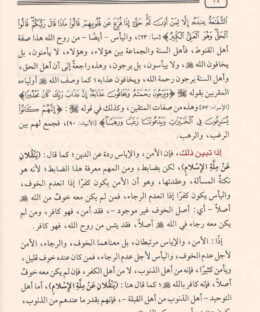 الشَّفَاعَةُ عِندَهُ إِلَّا لِمَنْ أَذِنَ لَهُ حَتَّى إِذَا فُزِّعَ عَن قُلُوبِهِمْ قَالُوا مَاذَا قَالَ رَبُّكُمْ قَالُوا
الْحَقَّ وَهُوَ الْعَلِيُّ الْكَبِيرُ﴾ [سبأ: ٢٣]، واليأس - أيضًا - من روح الله هذا صفة
أهل القنوط، فأهل السنة والجماعة بين هؤلاء، وهؤلاء، لا يأمنون، بل
يخافون الله ﷻ، ولا ييأسون، بل يرجون، وهذه راجعة إلى أن أهل الحق،
وأهل السنة يرجون رحمة الله، ويخافون عذابه؛ كما وصف الله ﷻ أولياءه
المقربين بقوله ﷻ: ﴿وَيَرْجُونَ رَحْمَتَهُ وَيَخَافُونَ عَذَابَهُ إِنَّ عَذَابَ رَبِّكَ كَانَ مَحْذُورًا﴾
[الإسراء: ٥٧] وهذه من صفات المتقين، وكذلك في قوله ﷻ: ﴿إِنَّهُمْ كَانُوا
يُسَارِعُونَ فِي الْخَيْرَاتِ وَيَدْعُونَنَا رَغَبًا وَرَهَبًا﴾ [الأنبياء: ٩٠]، فجمع لهم بين
الرغب، والرهب.
إذا تبين ذلك، فإن الأمن، والإياس ردة عن الدين؛ كما قال: (يَنْقُلَانِ
عَنْ مِلَّةِ الإِسْلَامِ)، لكن بضابط، ومن المهم معرفة هذا الضابط؛ لأنه هو
نكتة المسألة، وعقدتها، وهو أن الأمن يكون كفرًا إذا انعدم الخوف،
واليأس يكون كفرًا إذا انعدم الرجاء، فمن لم يكن معه خوفٌ من الله
أصلًا - أي: أصل الخوف غير موجود -، فقد أمن، فهو كافر، ومن لم
يكن معه رجاء في الله ﷻ أصلًا، فقد يئس من روح الله، فهو كافر.
إذًا: الأمن، والإياس مرتبطان، بل معناهما الخوف، والرجاء، الأمن
لأجل عدم الخوف، واليأس لأجل عدم الرجاء، فمن كان عنده خوف قليل،
ويأمن كثيرًا، فإنه من أهل الذنوب، لا من أهل الكفر، فإن لم يكن معه خوفٌ
أصلًا، فإنه كافر بالله ﷻ؛ كما قال هنا: (يَنْقُلَانِ عَنْ مِلَّةِ الإِسْلَامِ)، أما أهل
التوحيد - أهل الذنوب من أهل القبلة -، فإنهم بقدر ما عندهم من الذنوب،